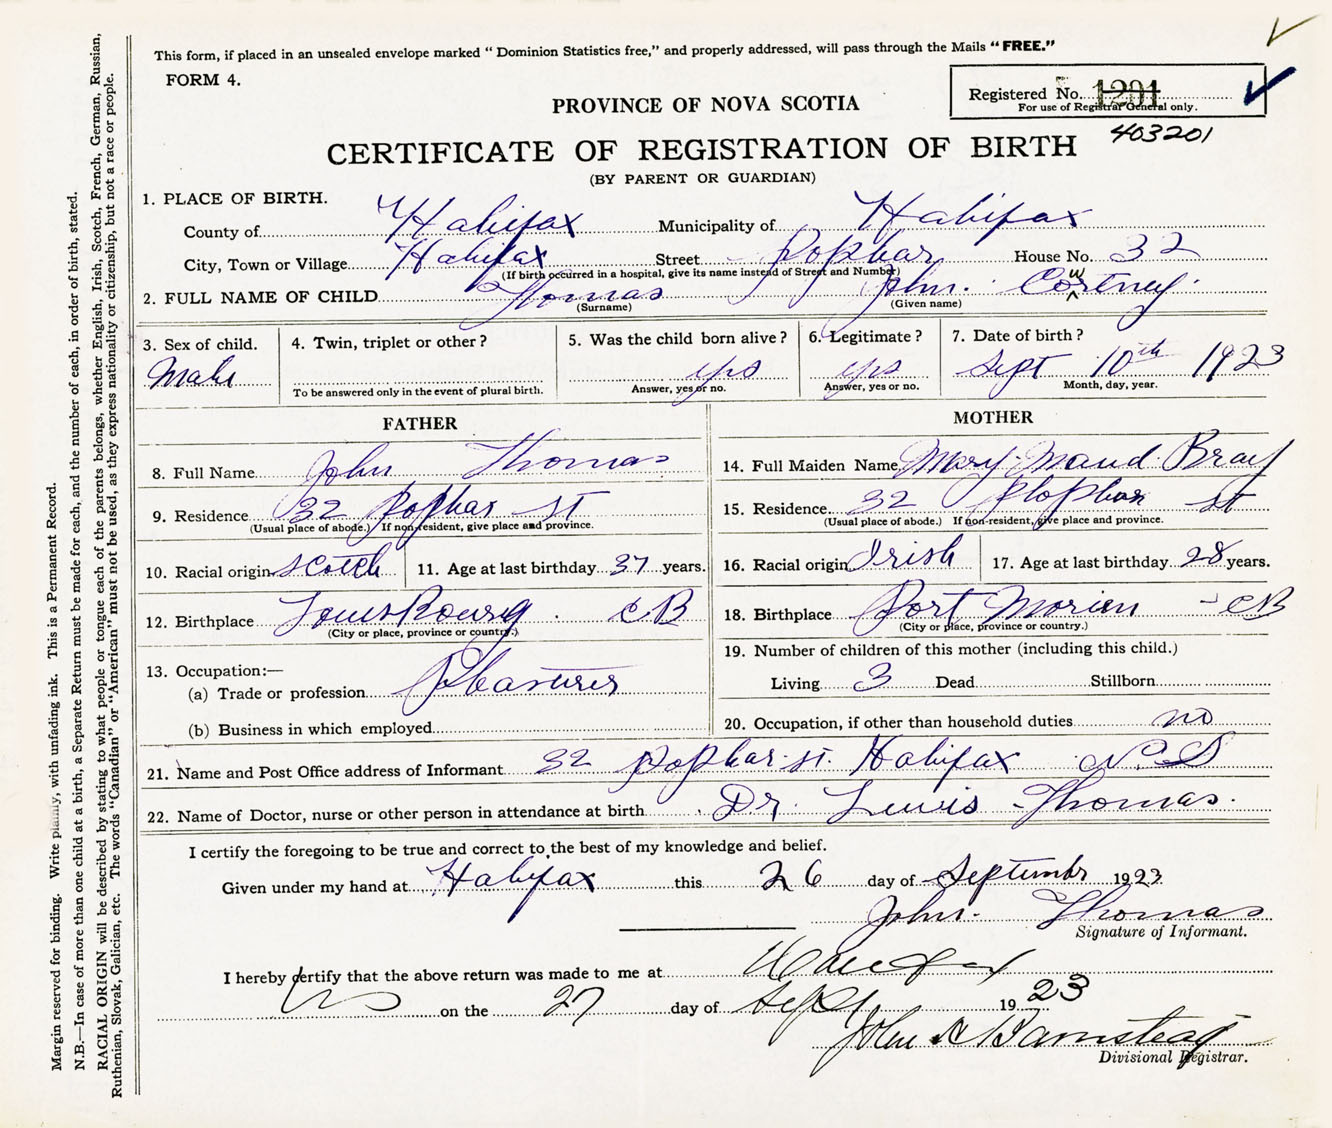 This form, if placed in an unsealed envelope marked “Dominion Statistics free,” and properly addressed, will pass through the Mails “FREE.”
FORM 4.
Registered No. 1201
For use of Registrar General only.
403201
PROVINCE OF NOVA SCOTIA
CERTIFICATE OF REGISTRATION OF BIRTH
(BY PARENT OR GUARDIAN)
1. PLACE OF BIRTH.
County of Halifax Municipality of Halifax
City, Town or Village Halifax Street Pophar House No. 32
(If birth occurred in a hospital, give its name instead of Street and Number)
2. FULL NAME OF CHILD Thomas John. Cowrtney.
(Surname) (Given name)
3. Sex of child. 4. Twin, triplet or other? 5. Was the child born alive? 6. Legitimate? 7. Date of birth?
Male yes yes Sept 10th 1923
To be answered only in the event of plural birth. Answer, yes or no. Answer, yes or no. Month, day, year.
FATHER
8. Full Name John Thomas
9. Residence 32 Pophar St
(Usual place of abode.) If non-resident, give place and province.
10. Racial origin Scotch 11. Age at last birthday 37 years.
12. Birthplace LouisBourg . CB
(City or place, province or country.)
13. Occupation:—
(a) Trade or profession Pleasturer
(b) Business in which employed
MOTHER
14. Full Maiden Name Mary Maud Bray
15. Residence 32 Plophar St
(Usual place of abode.) If non-resident, give place and province.
16. Racial origin Irish 17. Age at last birthday 28 years.
18. Birthplace Port Morien - CB
(City or place, province or country.)
19. Number of children of this mother (including this child.)
Living 3 Dead Stillborn
20. Occupation, if other than household duties no
21. Name and Post Office address of Informant 32 Pophar St. Halifax N.S
22. Name of Doctor, nurse or other person in attendance at birth Dr Lewis Thomas.
I certify the foregoing to be true and correct to the best of my knowledge and belief.
Given under my hand at Halifax this 26 day of September 1923
John. Thomas
Signature of Informant.
I hereby certify that the above return was made to me at Halifax
NS on the 27 day of Sept 1923
John A Barnstead
Divisional Registrar.
Margin reserved for binding. Write plainly, with unfading ink. This is a Permanent Record.
N.B.—In case of more than one child at a birth, a Separate Return must be made for each, and the number of each, in order of birth, stated.
RACIAL ORIGIN will be described by stating to what people or tongue each of the parents belongs, whether English, Irish, Scotch, French, German, Russian,
Ruthenian, Slovak, Galician, etc. The words “Canadian” or “American” must not be used, as they express nationality or citizenship, but not a race or people.